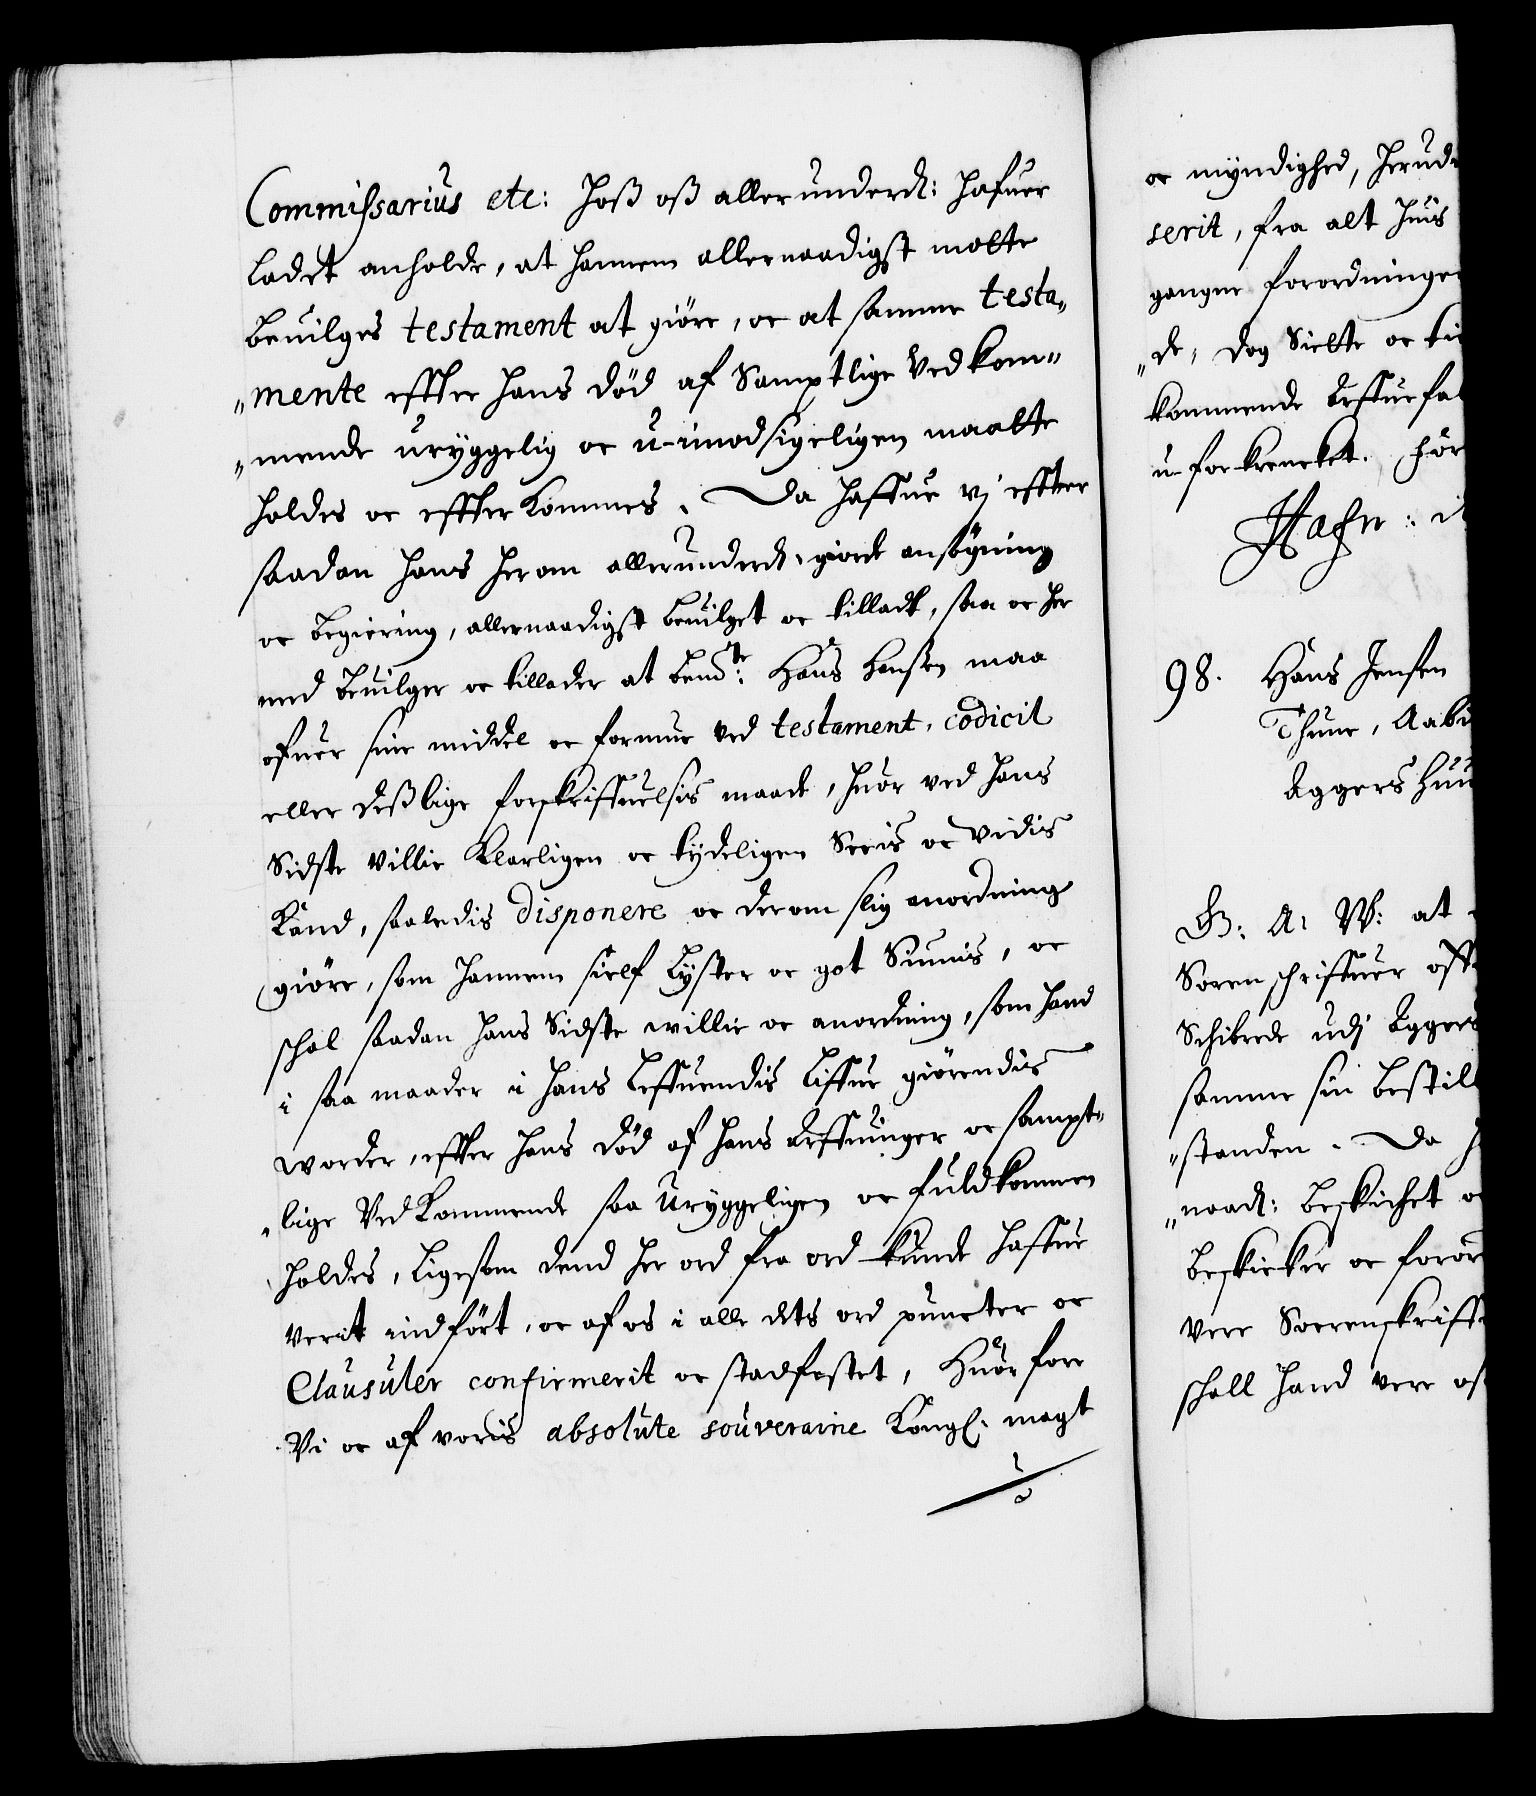 Commissarius etc: hoß oß allerunderd: hafuer
ladet anholde, at hannem allernaadigst motte
beuilges testament at giöre, oc at samme testa„
„mente effter hans död af Samptlige Vedkom„
„mende uryggelig oc u-imodsigeligen maatte
holdes oc effterkommes. Da haffue vj effter
saadan hans herom allerunderd: giorde ansögning
oc begiering, allernaadigst beuilget oc tilladt, saa oc her
med beuilger oc tillader at bemte: Hans Hansen maa
ofuer sine middel oc formue ved testament, codicil
eller deßlige forskriffuelsis maade, huor ved hans
Sidste villie klarligen oc tydeligen Seeis oc vidis
kand, saaledis disponere oc derom slig anordning
giöre, som hannem sielf lyster oc got Siunis, oc
schal saadan hans Sidste willie oc anordning, som hand
i saa maader i hans leffuendis liffue giörendis
worder, effter hans död af hans arffuinger oc sampt„
„lige Vedkommende saa Uryggeligen oc fuldkommen
holdes, ligesom dend her ord fra ord kunde haffue
verit indfört, oc af os i alle dets ord puncter oc
Clausuler confirmerit oc stadfestet, Huorfore
Vi oc af voris absolute souveraine Kongl: magt
oc myndighed, herud
serit, fra alt huis
gangne forordninge
„de, dog Sielte oc ti
kommende
u-forkrencket. For
Hafn: d
98. Hans Jensen
Thune, Aabu
Aggers Huu
G: A: W: at
Sorenschriffuer off
Schibrede udj Aggers
samme sin bestil
„standen. Da h
„naad: beskichet o
beskicker oc foror
vere Sorenskriff
schall hand vere os